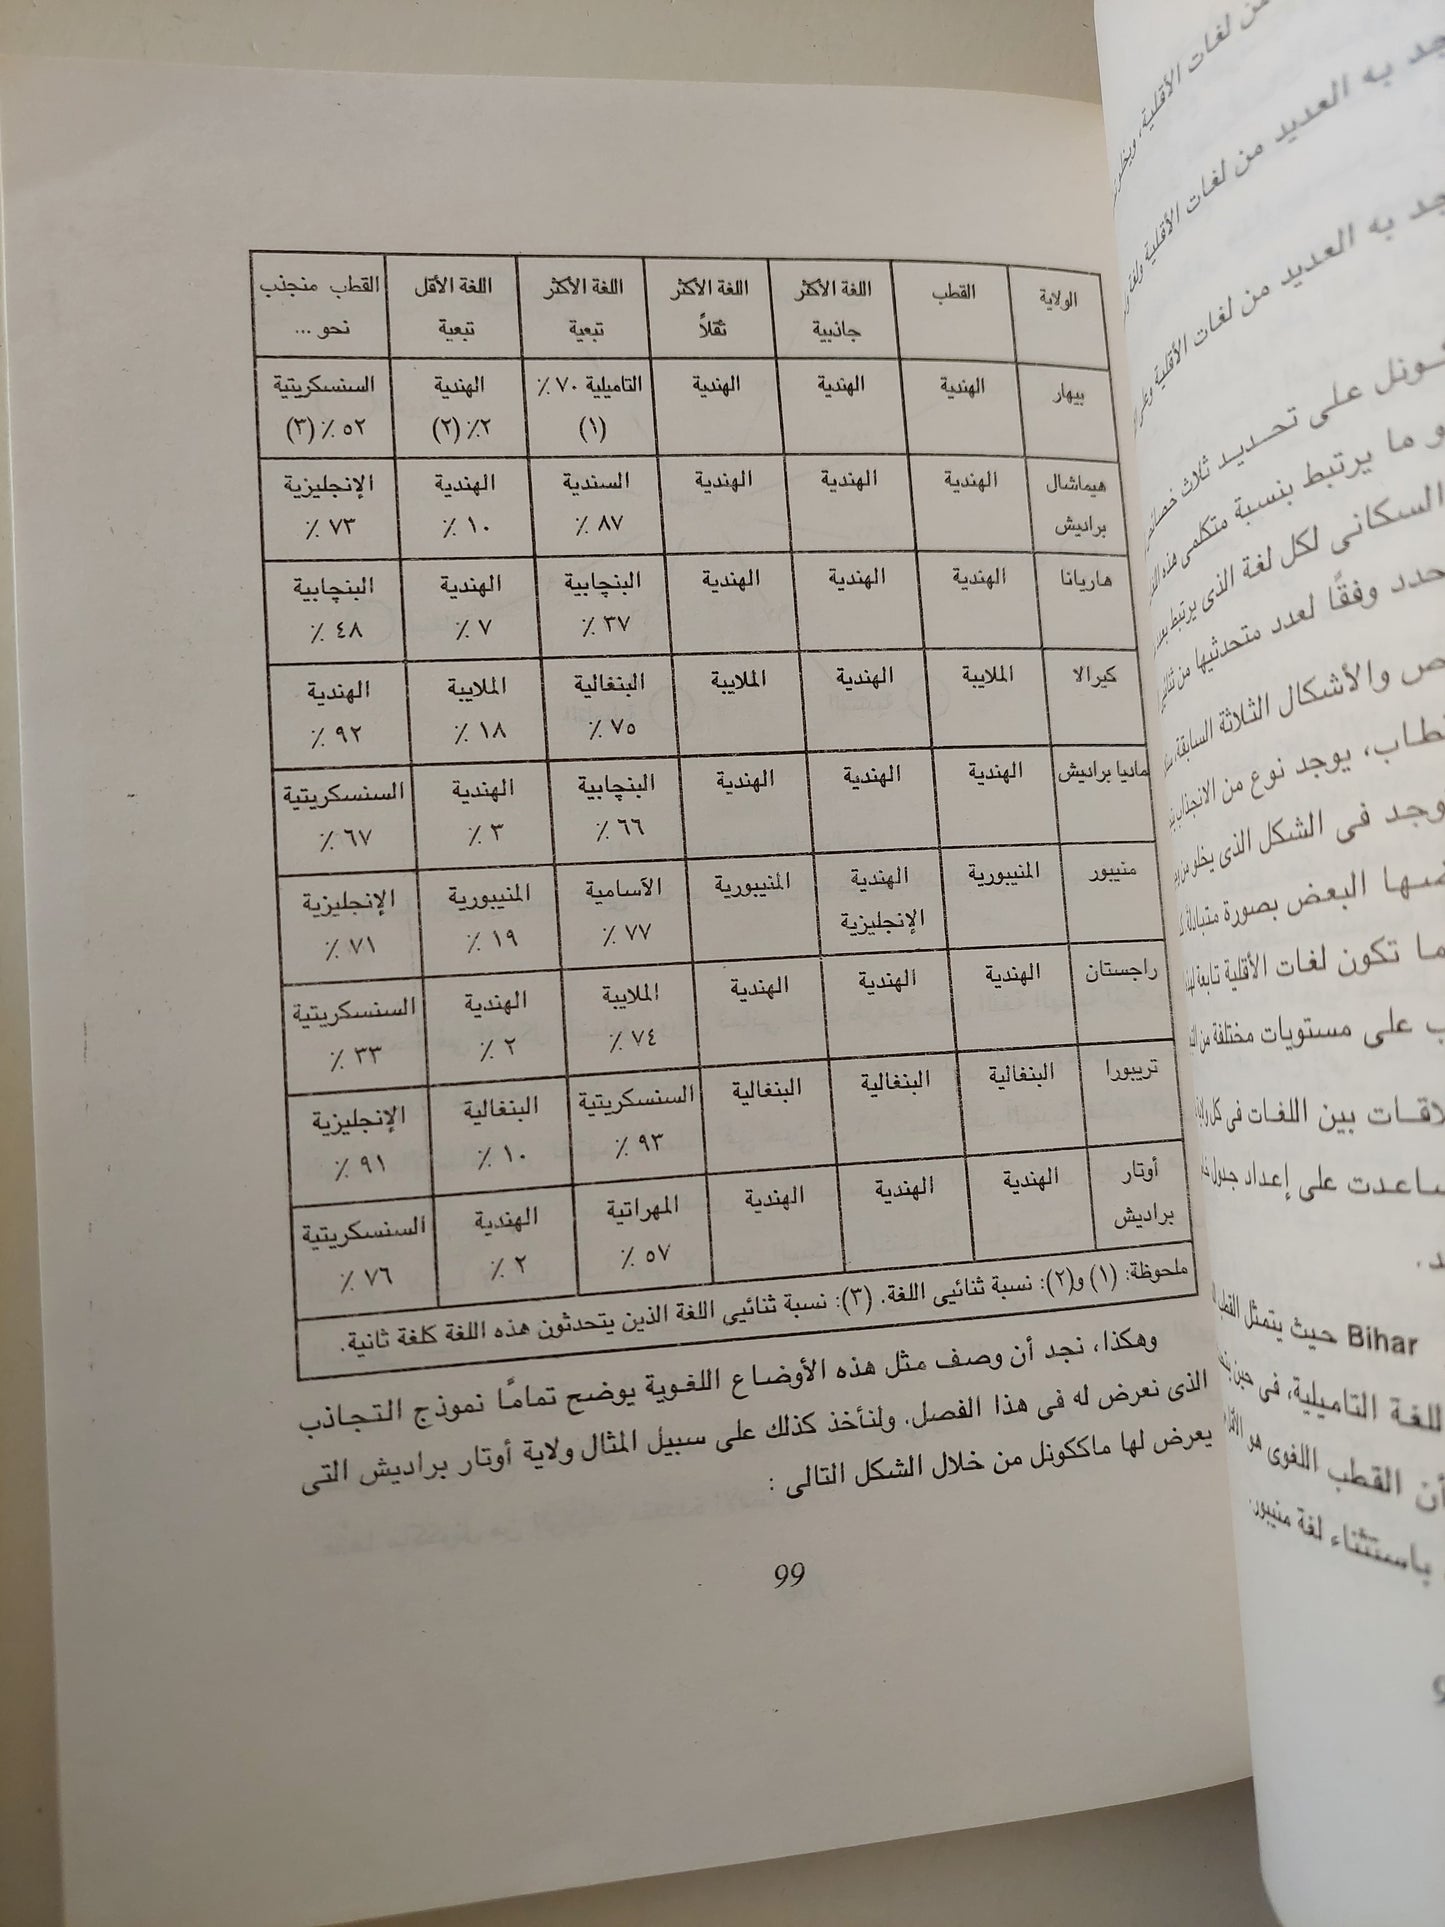 الولاية القطب اللغة الأكثر جاذبية اللغة الأكثر ثقلاً اللغة الأكثر تبعية اللغة الأقل تبعية القطب منجذب نحو ...
بيهار الهندية الهندية الهندية التاميلية ٧٠ ٪ (١) الهندية ٢٪ (٢) السنسكريتية ٥٢ ٪ (٣)
هيماشال براديش الهندية الهندية الهندية السندية ٨٧ ٪ الهندية ١٠ ٪ الإنجليزية ٧٣ ٪
هاريانا الهندية الهندية الهندية البنچابية ٣٧ ٪ الهندية ٧ ٪ البنچابية ٤٨ ٪
كيرالا الملايبة الهندية الملايبة البنغالية ٧٥ ٪ الملايبة ١٨ ٪ الهندية ٩٢ ٪
مادیا براديش الهندية الهندية الهندية البنچابية ٦٦ ٪ الهندية ٣ ٪ السنسكريتية ٦٧ ٪
منيبور المنيبورية الهندية الإنجليزية المنيبورية الآسامية ٧٧ ٪ المنيبورية ١٩ ٪ الإنجليزية ٧١ ٪
راجستان الهندية الهندية الهندية الملايبة ٧٤ ٪ الهندية ٢ ٪ السنسكريتية ٣٣ ٪
تريبورا البنغالية البنغالية البنغالية السنسكريتية ٩٣ ٪ البنغالية ١٠ ٪ الإنجليزية ٩١ ٪
أوتار براديش الهندية الهندية الهندية المهراتية ٥٧ ٪ الهندية ٢ ٪ السنسكريتية ٧٦ ٪
ملحوظة: (١) و(٢): نسبة ثنائيى اللغة. (٣): نسبة ثنائيى اللغة الذين يتحدثون هذه اللغة كلغة ثانية.
وهكذا، نجد أن وصف مثل هذه الأوضاع اللغوية يوضح تمامًا نموذج التجاذب
الذى نعرض له فى هذا الفصل. ولنأخذ كذلك على سبيل المثال ولاية أوتار براديش التى
يعرض لها ماككونل من خلال الشكل التالى :
99
من لغات الأقلية،
جد به العديد من لغات الأقلية ولغة
جد به العديد من لغات الأقلية
كونل على تحديد ثلاث
و ما يرتبط بنسبة متكلمى هذه
السكانى لكل لغة الذى يرتبط
حدد وفقًا لعدد متحدثيها من
ص والأشكال الثلاثة السابقة،
قطاب، يوجد نوع من الانجذاب
وجد فى الشكل الذى يخلو من
البعض بصورة متبادلة
ما تكون لغات الأقلية تابعة
ب على مستويات مختلفة من
لاقات بين اللغات فى كل
ساعدت على إعداد جدول
Bihar حيث يتمثل القطب
للغة التاميلية، فى حين
أن القطب اللغوى هو
باستثناء لغة منيبور.